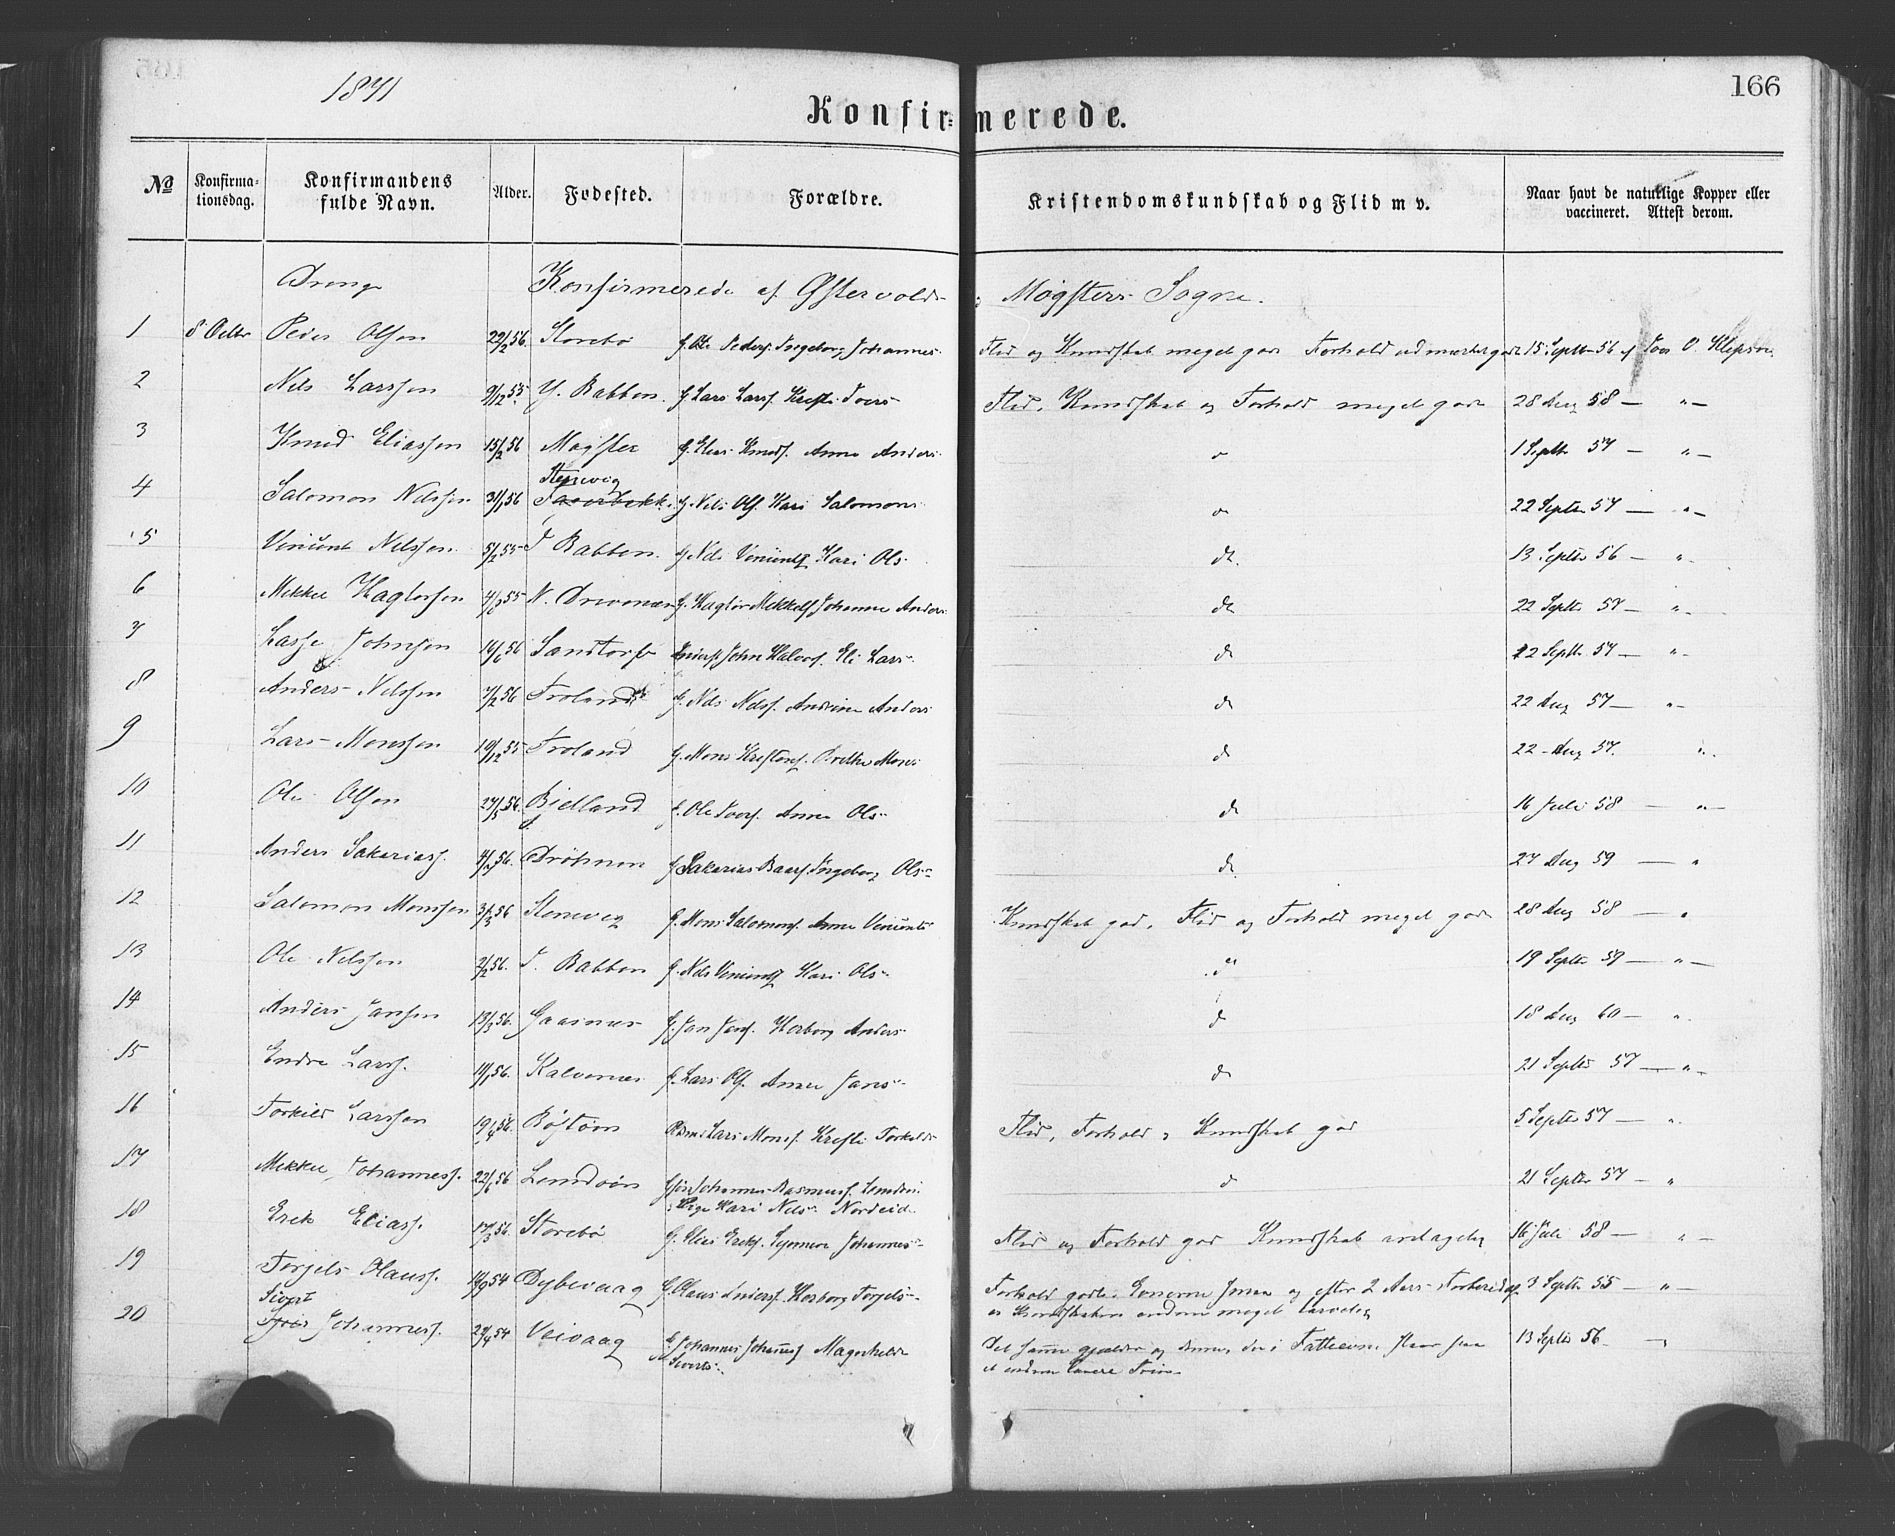 1871
166
Konfirmerede.
No Konfirmationsdag. Konfirmandens fulde Navn. Alder. Fødested. Forældre. Kristendomskundskab og Flid m v. Naar havt de naturlige Kopper eller vaccineret. Attest derom.
Drenge Konfirmerede af Østervolds Møgsters Sogne.
1 8 Octbr Peder Olsen 29/2 56. Storebø G. Ole Peders. Ingeborg Johannes Flid og Kundskab meget god Forhold udmærket godt 15 Septbr 56 af Joers O. Klepsvi
2 Nils Larssen 9/12 55. Y. Bakken. G Lars Larss. Kristi Joers Flid, Kundskab og Forhold meget god 28 Aug 58 — " —
3 Knud Eliassen 15/2 56 Møgster G. Elias Knuds. Anna Anders 1 Septbr 57 — " —
4 Salomon Nilssen 31/1 56 Stenevig G. Nils Ols. Kari Salomons 22 Septbr 57 — " —
5 Nilssen 5/2 55 Bakken. G Nils Kari Ols do. 13 Septbr 56 — "
6 Mikkel Hagtorsen 55 N. Drivenæs G. Hagtor Mikkels Johanna Anders do 22 Septbr 57 — " —
7 Lasse Johnsen 16/6 56 Sandtorv John Halvors. Eli Lars do 22 Septbr 57 — " —
8 Anders Nilssen 7/2 56 Troland G. Nils Nilss. Andrina Anders do 22 Aug 57 — " —
9 Lars Monssen 19/12 55 Troland G. Mons Kristens. Brithe Mons do 22 Aug 57. "
10 Ole Olsen 27/5 56. Bjelland G. Ole Joers. Anna Ols do 16 Juli 58 — " —
11 Anders Sakariass. 56. Drønen G Sakarias Baars. Ingeborg Ols do. 27 Aug 59 — "
12 Salomon Monssen 3/3 56 Stenevig G. Mons Salomons. Anna Kundskab god. Flid og Forhold meget god 28 Aug 58 — "
13 Ole Nilssen 2/2 56. Bakken G. Nils Kari Ols do 19 Septbr 59 — " —
14 Anders Jansen 13/3 56. Gaasnes G. Jan Jans. Herborg Anders d 18 Aug 60 — "
15 Endre Larss. 56. Kalvenes G. Lars Ols. Anna Jans d 21 Septbr 57 — " —
16 Torkild Larssen 19/4 56. Røstøen Lars Mons. Kristi Torkilds Flid, Forhold, Kundskab god 5 Septbr 57 — "
17 Mikkel Johanness. 22/6 56 Lundøen Johannes Rasmuss.
Pige Kari Nils Nordeid d 21 Septbr 57 — "
18 Erik Eliass. 17/3 56 Storebø G. Elias Eriks. Synneva Johannes Flid og Forhold god Kundskab antagelig 16 Juli 58 — " —
19 Torjels Olauss. 18/9 54 Dybevaag G. Olaus Anders. Herborg Torjels Forhold godt. Evnerne smaa og efter 2 Aars Forbered 3 Septbr 55 — " —
er Kundskaben endnu meget tarvelig
20 Sivert Johanness. 29/4 54 Veivaag G. Johannes Johanness Magnhilde
Siverts Det samme gjælder og denne, der i Fatteevne staar paa 13 Septbr 56 "
et endnu lavere Trin